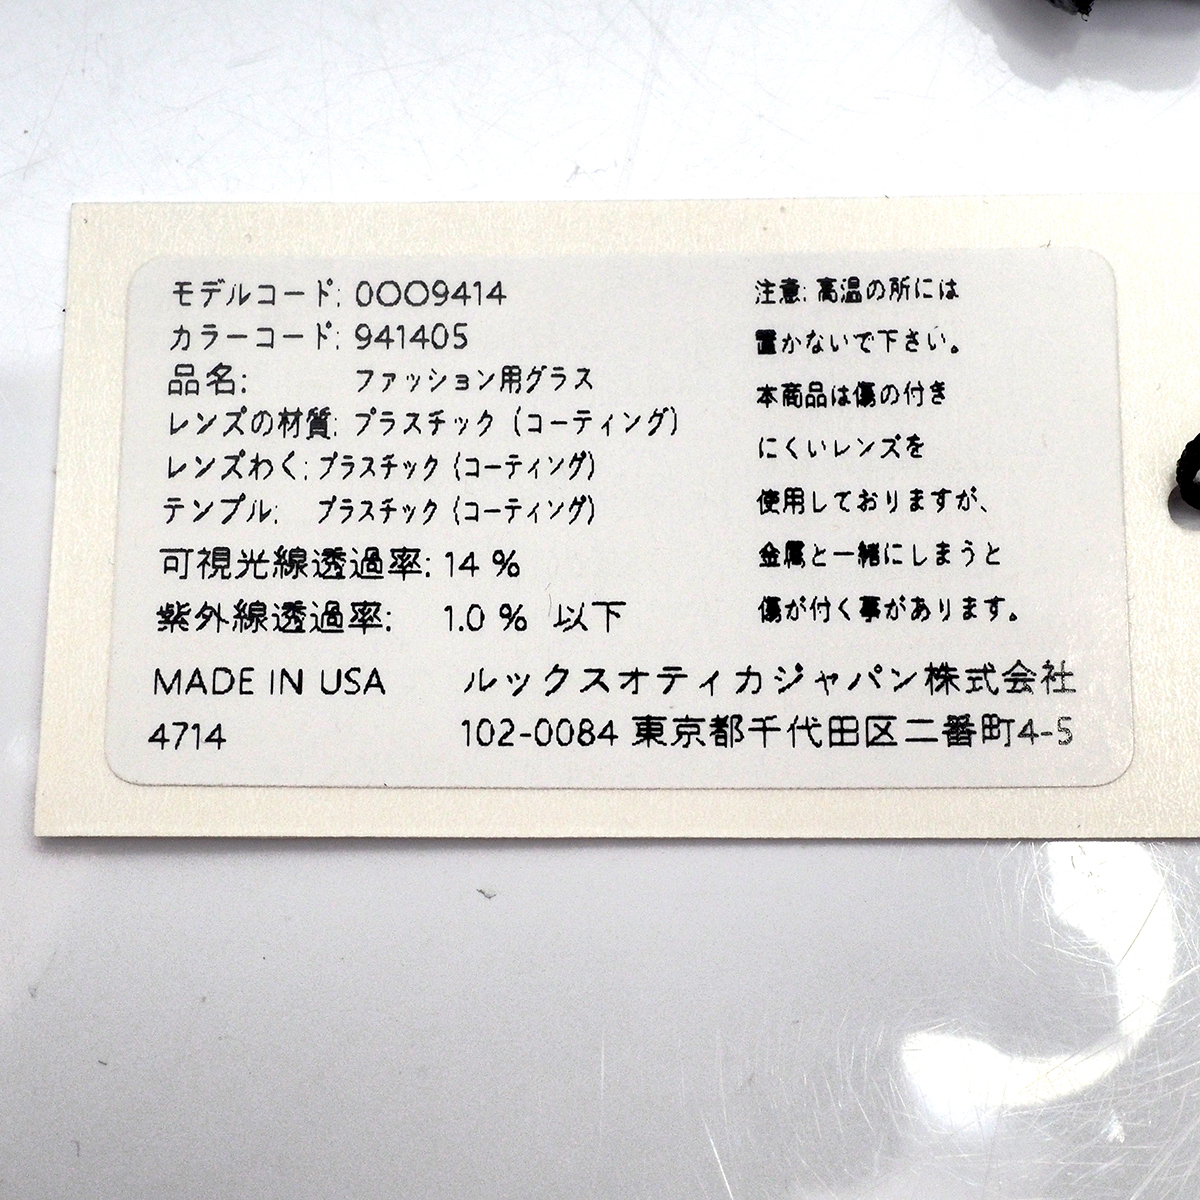 モデルコード: 0OO9414
カラーコード: 941405
品名: ファッション用グラス
レンズの材質: プラスチック (コーティング)
レンズわく: プラスチック (コーティング)
テンプル: プラスチック (コーティング)
可視光線透過率: 14 %
紫外線透過率: 1.0 % 以下
注意: 高温の所には
置かないで下さい。
本商品は傷の付き
にくいレンズを
使用しておりますが、
金属と一緒にしまうと
傷が付く事があります。
MADE IN USA
4714
ルックスオティカジャパン株式会社
102-0084 東京都千代田区二番町4-5